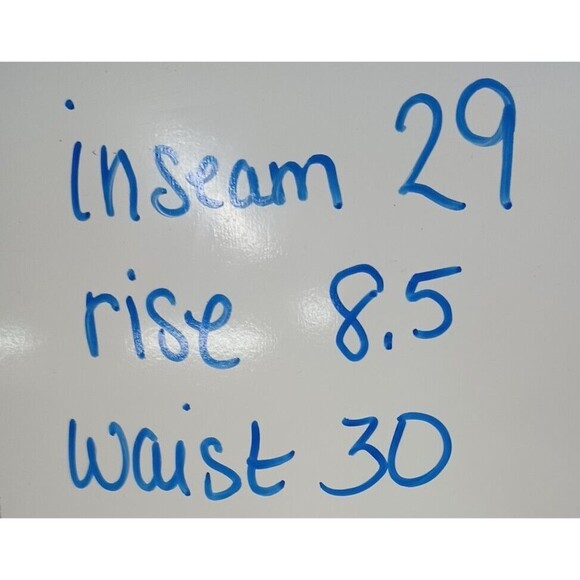 inseam 29
rise 8.5
waist 30